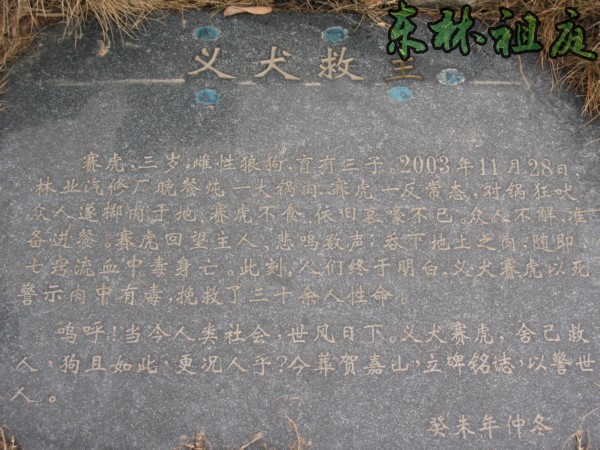 东林祖庭
义犬救主
赛虎,三岁,雌性狼狗,育有三子。2003年11月28日,
林业汽修厂晚餐炖一大锅肉,赛虎一反常态,对锅狂吠
众人遂掷肉于地,赛虎不食,依旧哀嚎不已。众人不解,准
备进餐。赛虎回望主人,悲鸣数声,吞下地上之肉,随即,
七窍流血中毒身亡。此刻,人们终于明白,义犬赛虎以死
警示肉中有毒,挽救了三十余人性命。
呜呼!当今人类社会,世风日下。义犬赛虎,舍己救
人,狗且如此,更况人乎?今葬贺嘉山,立碑铭志,以警世
人。
癸未年仲冬